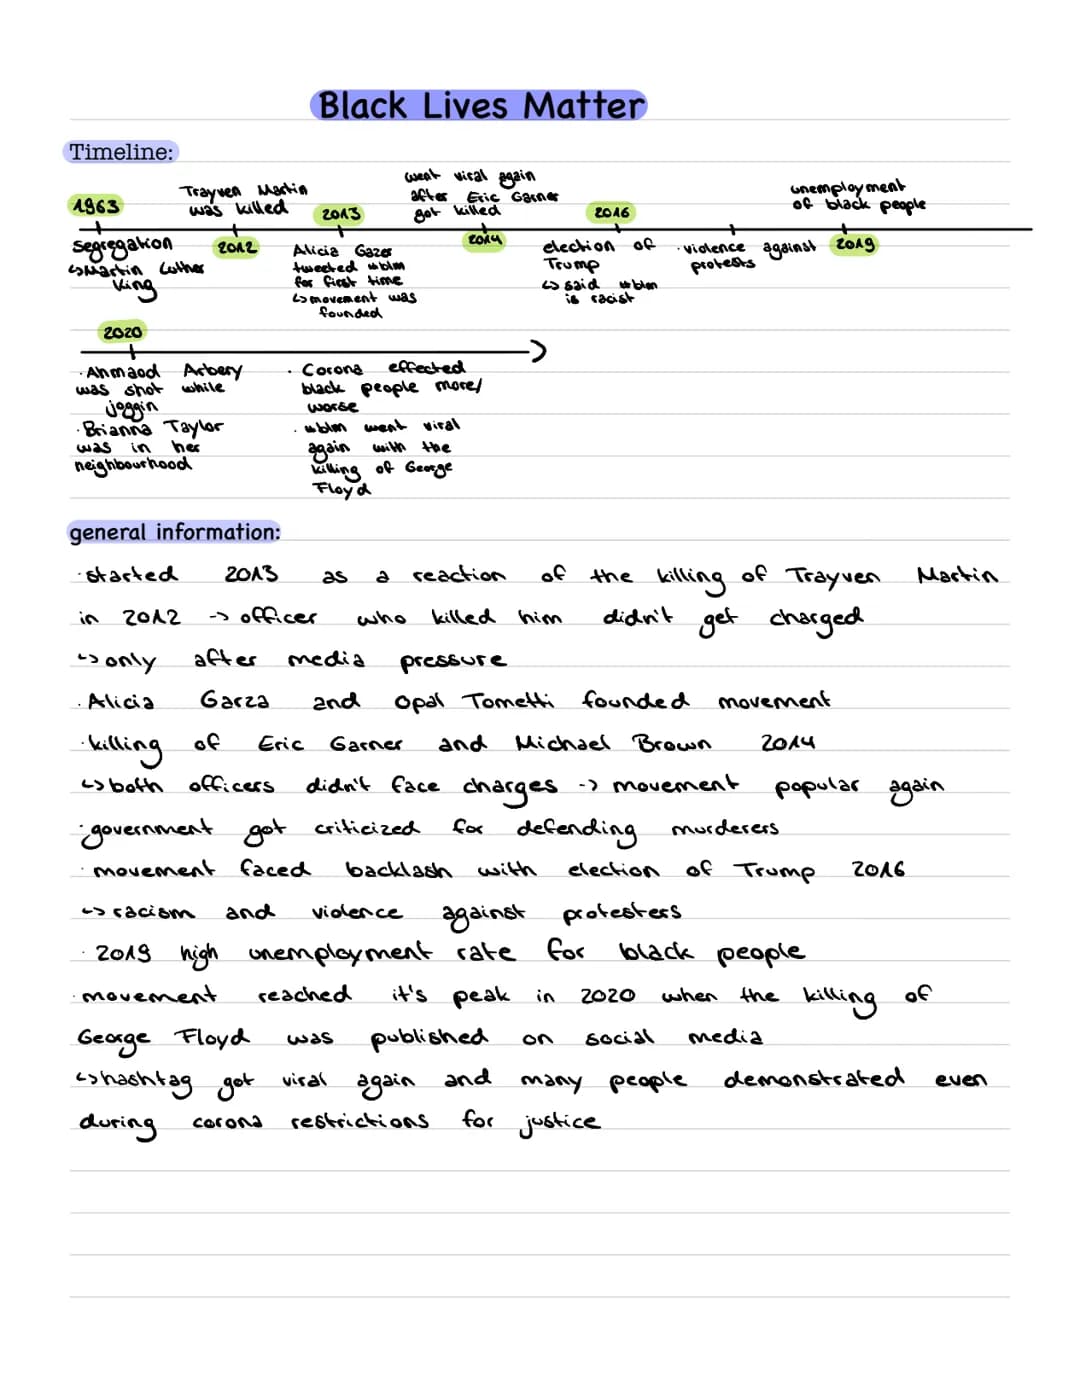 Black Lives Matter
Timeline:
1963
segregation
↳Martin Luther
King
2012
Trayven Martin
was killed
2013
Alicia Gazer
tweeted #blm
for first time
↳movement was
founded
went viral again
after Eric Garner
got killed
2014
2016
election of
Trump
↳ said #blm
is racist
·violence against
protests
unemployment
of black people
2019
2020
·Ahmaod Arbery
was shot while
joggin
·Brianna Taylor
was in her
neighbourhood
· Corona effected
black people more/
worse
· #blm went viral
again with the
killing of George
Floyd
general information:
·started 2013 as a reaction of the killing of Trayven Martin
in 2012 -> officer who killed him didn't get charged
↳only after media pressure
·Alicia Garza and Opal Tometti founded movement
·killing of Eric Garner and Michael Brown 2014
↳both officers didn't face charges -> movement popular again
·government got criticized for defending murderers
·movement faced backlash with election of Trump 2016
↳racism and violence against protesters
· 2019 high unemployment rate for black people
·movement reached it's peak in 2020 when the killing of
George Floyd was published on social media
↳hashtag got viral again and many people demonstrated even
during corona restrictions for justice